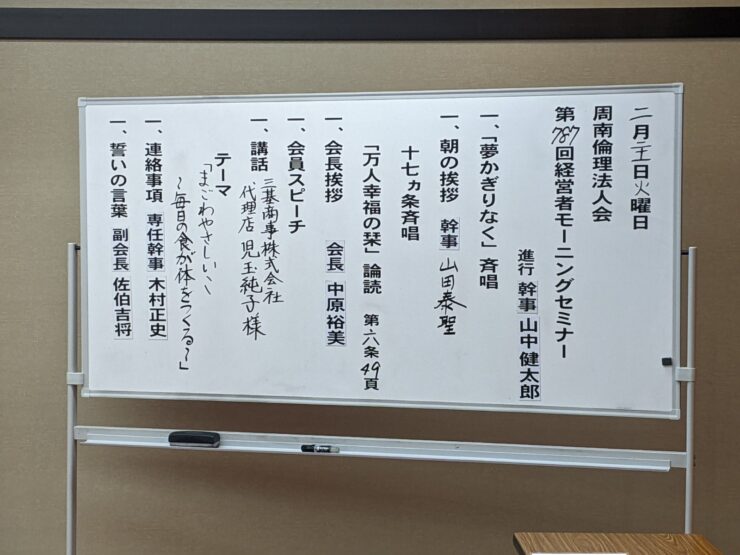 二月二十一日火曜日
周南倫理法人会
第787回経営者モーニングセミナー
進行 幹事 山中健太郎
一、「夢かぎりなく」斉唱
一、朝の挨拶 幹事 山田泰聖
十七ヵ条斉唱
「万人幸福の栞」論読 第六条 49頁
一、会長挨拶 会長 中原裕美
一、会員スピーチ
一、講話 三基商事株式会社
代理店 児玉純子様
テーマ
「まごわやさしい」
~毎日の食が体をつくる~」
一、連絡事項 専任幹事 木村正史
一、誓いの言葉 副会長 佐伯吉将